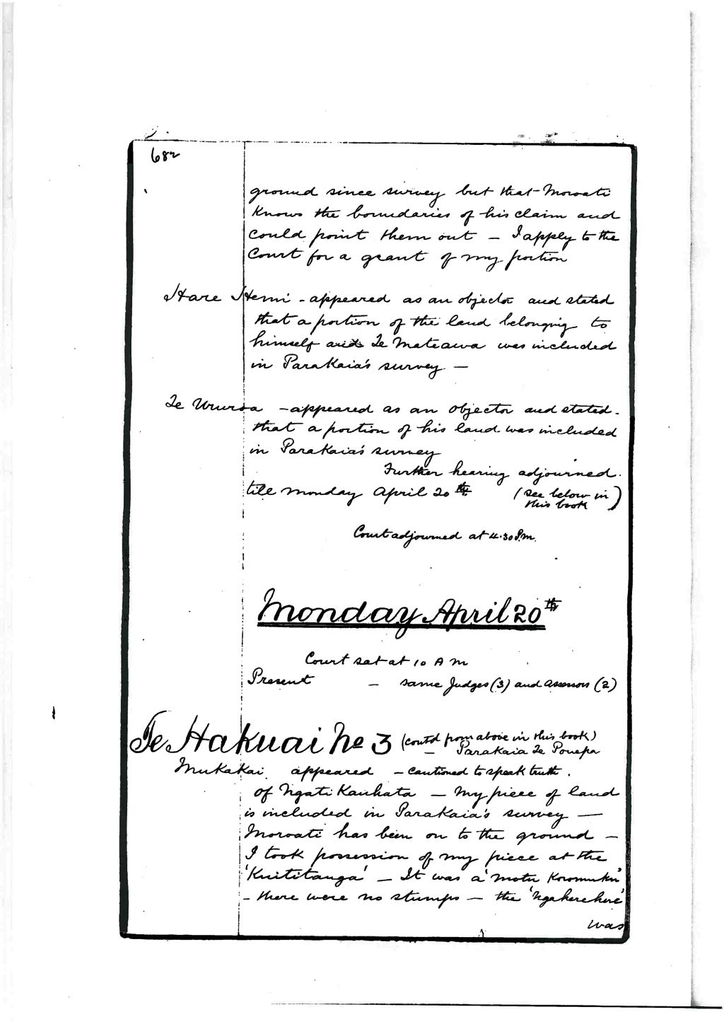 682
ground since survey but that Moroati
knows the boundaries of his claim and
could point them out — I apply to the
Court for a grant of my portion
Hare Hemi - appeared as an objector and stated
that a portion of the land belonging to
himself and Te Mateawa was included
in Parakaia's survey —
Te Ururoa - appeared as an objector and stated -
that a portion of his land was included
in Parakaia's survey
Further hearing adjourned.
till Monday April 20th (see below in
this book)
Court adjourned at 4.30 P.m.
Monday April 20th
Court sat at 10 A m
Present — same Judges (3) and assessors (2)
Te Hakuai No 3 (contd from above in this book)
— Parakaia Te Pouepa
Mukakai appeared - cautioned to speak truth.
of Ngati Kauhata — My piece of land
is included in Parakaia's survey —
Moroati has been on to the ground —
I took possession of my piece at the
'Kuititanga' — It was a 'motu Koromuku'
- there were no stumps — the 'Ngaherehere'
was